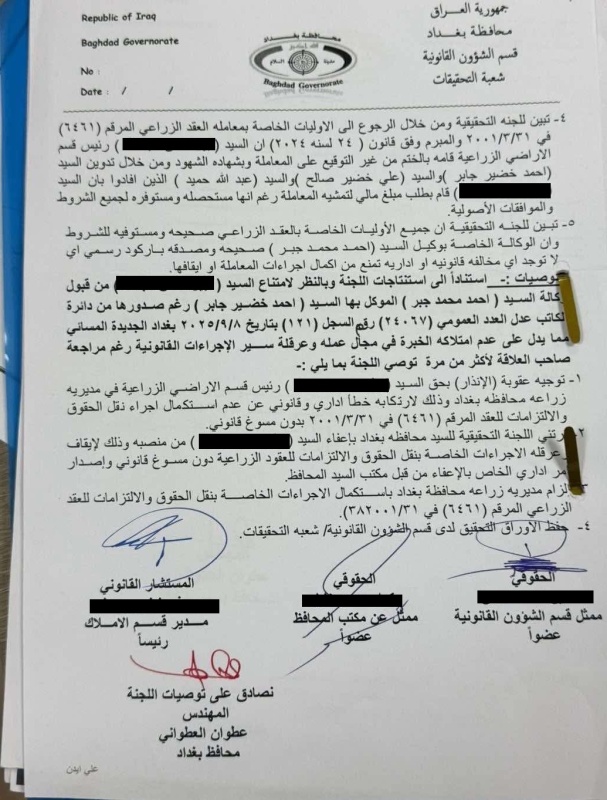 جمهورية العراق
محافظة بغداد
قسم الشؤون القانونية
شعبة التحقيقات
Republic of Iraq
Baghdad Governorate
No :
Date : / /
محافظة بغداد
Baghdad Governorate
٤- تبين للجنه التحقيقية ومن خلال الرجوع الى الاوليات الخاصة بمعامله العقد الزراعي المرقم (٦٤٦١)
في ٢٠٠١/٣/٣١ والمبرم وفق قانون (٢٤ لسنه ٢٠٢٤) ان السيد ( ) رئيس قسم
الاراضي الزراعية قامه بالختم من غير التوقيع على المعاملة وبشهاده الشهود ومن خلال تدوين السيد
(احمد خضير جابر )والسيد (علي خضير صالح )والسيد (عبد الله حميد ) الذين افادوا بان السيد
قام بطلب مبلغ مالي لتمشيه المعاملة رغم انها مستحصله ومستوفره لجميع الشروط
والموافقات الأصولية.
٥- تبين للجنه التحقيقية ان جميع الأوليات الخاصة بالعقد الزراعي صحيحه ومستوفيه للشروط
وان الوكالة الخاصة بوكيل السيد (احمد محمد جبر ) صحيحه ومصدقه باركود رسمي اي
لا توجد أي مخالفه قانونيه او اداريه تمنع من اكمال اجراءات المعاملة او ايقافها.
توصيات :- استناداً الى استنتاجات اللجنة وبالنظر لامتناع السيد ( ) من قبول
وكالة السيد ( احمد محمد جبر ) الموكل بها السيد ( احمد خضير جابر ) رغم صدورها من دائرة
الكاتب عدل العدد العمومي (٢٤٠٦٧) رقم السجل (١٢١) بتاريخ ٢٠٢٥/٩/٨ بغداد الجديدة المسائي
مما يدل على عدم امتلاكه الخبرة في مجال عمله وعرقلة سير الإجراءات القانونية رغم مراجعة
صاحب العلاقة لأكثر من مرة توصي اللجنة بما يلي :-
١- توجيه عقوبة (الإنذار) بحق السيد ( ) رئيس قسم الاراضي الزراعية في مديريه
زراعه محافظة بغداد وذلك لارتكابه خطأ اداري وقانوني عن عدم استكمال اجراء نقل الحقوق
والالتزامات للعقد المرقم (٦٤٦١) في ٢٠٠١/٣/٣١ بدون مسوغ قانوني.
٢- ترتئي اللجنة التحقيقية للسيد محافظه بغداد بإعفاء السيد ( ) من منصبه وذلك لإيقاف
وعرقله الاجراءات الخاصة بنقل الحقوق والالتزامات للعقود الزراعية دون مسوغ قانوني وإصدار
امر اداري الخاص بالإعفاء من قبل مكتب السيد المحافظ.
الزام مديريه زراعه محافظة بغداد باستكمال الاجراءات الخاصة بنقل الحقوق والالتزامات للعقد
الزراعي المرقم (٦٤٦١) في ٣٨٢٠٠١/٣١).
٤- حفظ الاوراق التحقيق لدى قسم الشؤون القانونية/ شعبه التحقيقات.
الحقوقي
ممثل قسم الشؤون القانونية
عضواً
الحقوقي
ممثل عن مكتب المحافظ
عضواً
المستشار القانوني
مدير قسم الاملاك
رئيساً
نصادق على توصيات اللجنة
المهندس
عطوان العطواني
محافظ بغداد
علي ايدن